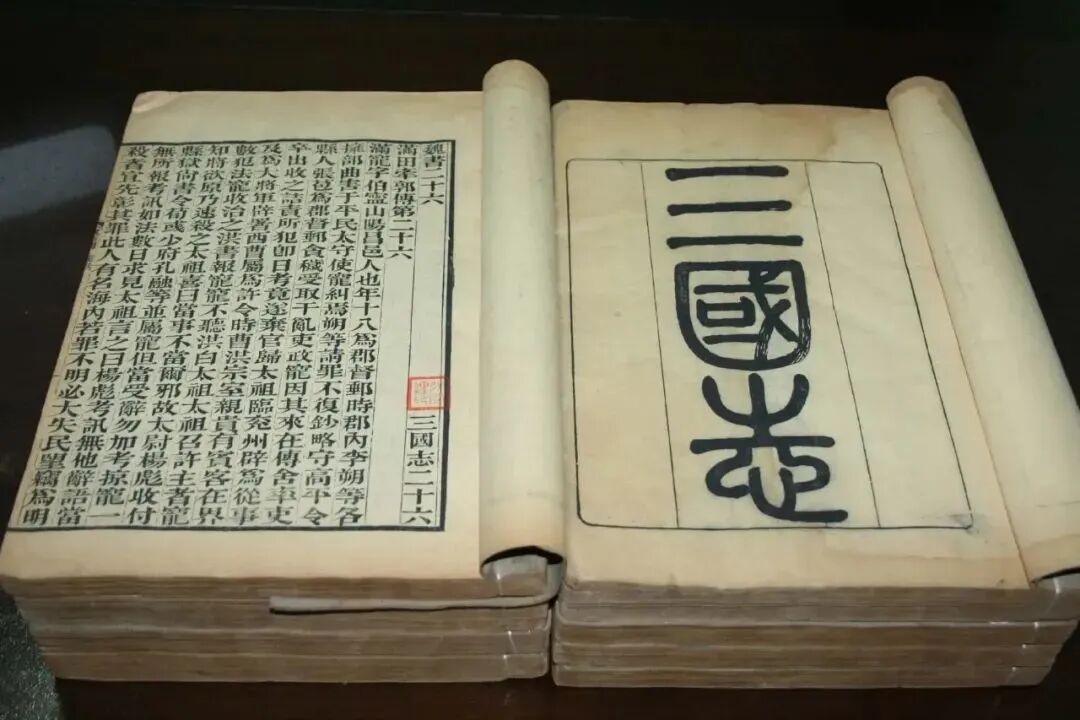 魏書二十六
三國志二十六
滿田牽郭傳第二十六
滿寵字伯寧山陽昌邑人也年十八爲郡督郵時郡內李朔等各
擁部曲害于平民太守使寵糾焉朔等請罪不復鈔略守高平令
縣人張苞爲郡督郵貪穢受取干亂吏政寵因其來在傳舍率吏
卒出收之詰責所犯卽日考竟遂棄官歸太祖臨兗州辟爲從事
及爲大將軍辟署西曹屬爲許令時曹洪宗室親貴有賓客在界
數犯法寵收治之洪書報寵寵不聽洪白太祖太祖召許主者寵
知將欲原乃速殺之太祖喜曰當事不當爾邪故太尉楊彪收付
縣獄尚書令荀彧少府孔融等並屬寵但當受辭勿加考掠寵一
無所報考訊如法數日求見太祖言之曰楊彪考訊無他辭語當
殺者宜先彰其罪此人有名海內若罪不明必大失民望竊爲明
三國志